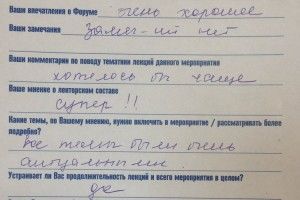 Ваши впечатления о Форуме очень хорошее
Ваши замечания замеч-ий нет
Ваши комментарии по поводу тематики лекций данного мероприятия
хотелось бы чаще
Ваше мнение о лекторском составе
супер !!
Какие темы, по Вашему мнению, нужно включить в мероприятие / рассматривать более
подробно?
все темы были очень
актуальными.
Устраивает ли Вас продолжительность лекций и всего мероприятия в целом?
да